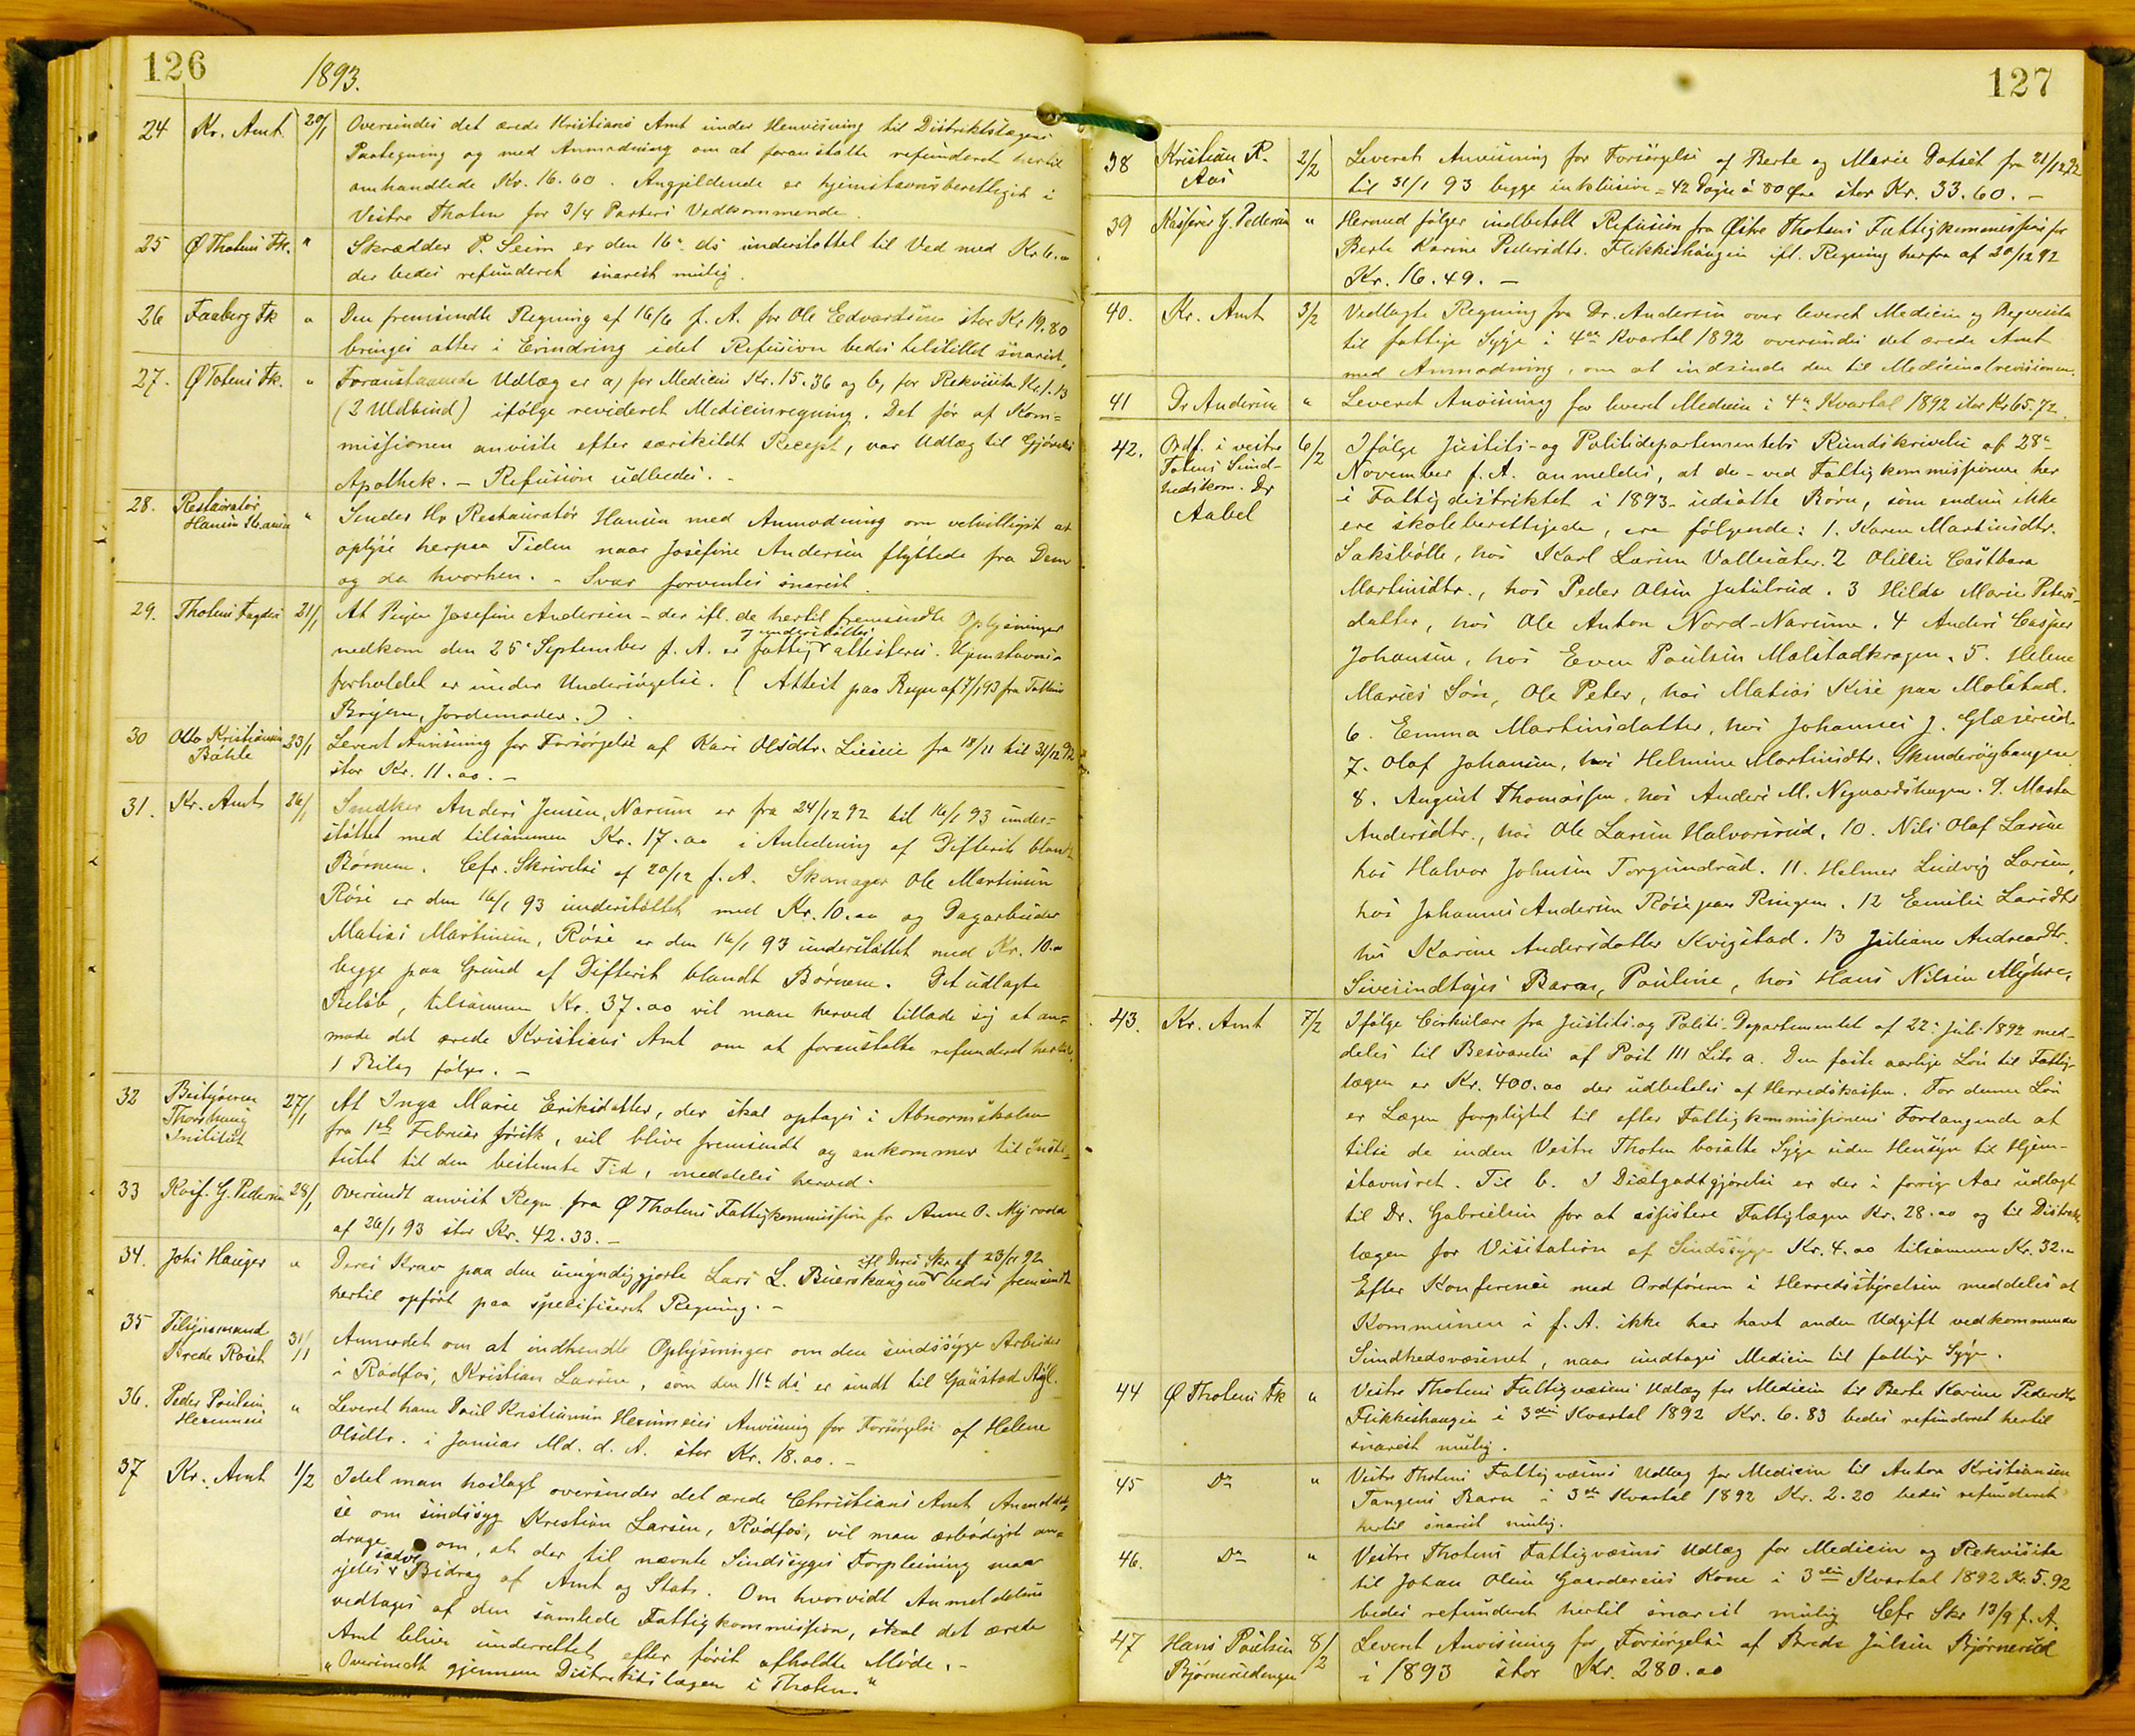 126
1893.
24 Kr. Amt. 20/1 Oversendes det ærede Kristians Amt under Henvisning til Distriktslægens
Paategning og med Anmodning om at foranstalte refunderet hertil
omhandlede Kr. 16.60. Angjældende er hjemstavnsberettiget i
Vestre Thoten for 3/4 Parters Vedkommende.
25 Ø Thotens Fk. " Skrædder P. Seim er den 16de ds understøttet til Ved med Kr. 6.00
der bedes refunderet snarest mulig.
26 Faaberg Fk " Den fremsendte Regning af 16/6 f. A. for Ole Edvardsen stor Kr 19.80
bringes atter i Erindring idet Refusion bedes tilstillet snarest.
27. Ø Totens Fk. " Foranstaaende Udlæg er a, for Medicin Kr. 15.36 og b, for Rekvisita Kr. 1.13
(2 Uldbind) ifølge revideret Medicinregning. Det før af Kom=
missionen anviste efter særskildt Recept, var Udlæg til Gjøviks
Apothek. – Refusion udbedes. –
28. Restauratør
Hansen Kr.ania " Sendes Hr Restauratør Hansen med Anmodning om velvilligst at
oplyse herpaa Tiden naar Josefine Andersen flyttede fra Dem
og da hvorhen. – Svar forventes snarest.
29. Thotens Fogderi 21/1 At Pigen Josefine Andersen – der ifl. de hertil fremsendte Oplysninger
og understøttes
nedkom den 25de September f. A. er fattig attesteres. Hjemstavns=
forholdet er under Undersøgelse. (Attest paa Regn af 17/1 93 fra
Jordemoder.)
30 Otto Kristiansen
Bøhle 23/1 Leveret Anvisning for Forsørgelse af Kari Olsdtr. fra 18/11 til 31/12 92
stor Kr. 11.00. –
31. Kr. Amt 26/1 Snedker Anders Jensen, Narum er fra 24/12 92 til 16/1 93 under=
støttet med tilsammen Kr. 17.00 i Anledning af Difterit blandt
Børnene. Cfr. Skrivelse af 20/12 f. A. Skomager Ole Martinsen
Røse er den 16/1 93 understøttet med Kr. 10.00 og Dagarbeider
Matias Martinsen, Røse er den 16/1 93 understøttet med Kr. 10.00
begge paa Grund af Difterit blandt Børnene. Det udlagte
Beløb, tilsammen Kr. 37.00 vil man herved tillade sig at an=
mode det ærede Kristians Amt om at foranstalte refunderet hertil.
1 Bilag følger. –
32 Bestyreren
Institut 27/1 At Inga Marie Eriksdatter, der skal optages i Abnormskolen
fra 1st Februar førstk, vil blive fremsendt og ankommer til Insti=
tutet til den bestemte Tid, meddeles herved.
33 Kasf. G. Pedersen 28/1 Oversendt anvist Regn. fra Ø Thotens Fattigkommission for Anne O.
af 26/1 93 stor Kr. 42.33. –
34. Johs Hauger " ifl Deres Skr af 23/11 92
Deres Krav paa den umyndiggjorte Lars L. bedes fremsendt
hertil opført paa specifiseret Regning. –
35 Tilsynsmand
Brede Roset 31/1 Anmodet om at indhendte Oplysninger om den sindssyge Arbeider
i Rødfos, Kristian Larsen, som den 11te ds er sendt til Gaustad Asyl.
36. Peder Paulsen " Leveret ham Paul Kristiansen Anvisning for Forsørgelse af Helene
Olsdtr. i Januar Md. d. A. stor Kr. 18.00. –
37 Kr. Amt 1/2 Idet man hoslagt oversender det ærede Christians Amt Anmeldel=
se om sindssyg Krestian Larsen, Rødfos, vil man ærbødigst an=
drage om, at der til nævnte Sindssyges Forpleining maa
sædv.
ydes Bidrag af Amt og Stat. Om hvorvidt Anmeldelsen
vedtages af den samlede Fattigkommission, skal det ærede
Amt blive underrettet efter først afholdte Møde. –
"Oversendt gjennem Distriktslægen i Thoten."
127
38 Kristian R.
Aas 2/2 Leveret Anvisning for Forsørgelse af Berte og Marie Dotset fra 21/12 92
til 31/1 93 begge inklusive = 42 Dage à 80 Øre stor Kr. 33.60. –
39 Kasserer G. Pedersen " Herved følger indbetalt Refusion fra Østre Thotens Fattigkommission for
Berte Karine Pedersdtr. Flikkeshaugen ifl. Regning herfra af 20/12 92
Kr. 16.49. –
40. Kr. Amt 3/2 Vedlagte Regning fra Dr. Andersen over leveret Medicin og Reqvisita
til fattige Syge i 4de Kvartal 1892 oversendes det ærede Amt
med Anmodning, om at indsende den til Medicinalrevisionen.
41 Dr Andersen " Leveret Anvisning for leveret Medicin i 4de Kvartal 1892 stor Kr 65.72.
42. Ordf. i vestre
Totens Sund-
hedskom. Dr
Aabel 6/2 Ifølge Justits- og Politidepartementets Rundskrivelse af 28de
November f. A. anmeldes, at de – ved Fattigkommissionen her
i Fattigdistriktet i 1893 – udsatte Børn, som endnu ikke
ere skoleberettigede, ere følgende: 1. Karen Martinsdtr.
Saksbølle, hos Karl Larsen Vallesæter. 2 Castbara
Martinsdtr., hos Peder Olsen Jutulrud. 3 Hilda Marie Peters=
datter, hos Ole Anton Nord-Narum. 4 Anders Casper
Johansen, hos Even Paulsen Malstadkragen. 5. Helene
Maries Søn, Ole Peter, hos Matias Kise paa Molstad.
6. Emma Martinsdatter, hos Johannes J. Glæserud.
7. Olaf Johansen, hos Helmine Martinsdtr.
8. August Thomassen, hos Anders M. Nygaardshagen. 9. Marta
Andersdtr., hos Ole Larsen Halvorsrud. 10. Nils Olaf Larsen
hos Halvor Johnsen Torgunrud. 11. Helmer Ludvig Larsen,
hos Johannes Andersen Røse paa Ringen. 12 Emilie Larsdtr
hos Karine Andersdatter Kvigstad. 13 Juliane Andreasdtr.
Barn, Pauline, hos Hans Nilsen Myhre.
43. Kr. Amt 7/2 Ifølge Cirkulære fra Justits- og Politi-Departementet af 22: juli 1892 med=
deles til Besvarelse af Post III Litr a. Den faste aarlige Løn til Fattig=
lægen er Kr. 400.00 der udbetales af Herredskassen. For denne Løn
er Lægen forpligtet til efter Fattigkommissionens Forlangende at
tilse de inden Vestre Thoten bosatte Syge uden Hensyn til Hjem=
stavnsret. Til b. I Diætgodtgjørelse er der i forrige Aar udlagt
til Dr. Gabrielsen for at assistere Fattiglægen Kr. 28.00 og til Distrikts=
lægen for Visitation af Sindssyge Kr. 4.00 tilsammen Kr. 32.00
Efter Konference med Ordføreren i Herredsstyrelsen meddeles at
Kommunen i f. A. ikke har havt anden Udgift vedkommende
Sundhedsvæsenet, naar undtages Medicin til fattige Syge.
44 Ø Thotens Fk " Vestre Thotens Fattigvæsens Udlæg for Medicin til Berte Karine Pedersdtr
Flikkeshaugen i 3die Kvartal 1892 Kr. 6.83 bedes refunderet hertil
snarest mulig.
45 Do " Vestre Thotens Fattigvæsens Udlæg for Medicin til Anton Kristiansen
Tangens Barn i 3die Kvartal 1892 Kr. 2.20 bedes refunderet
hertil snarest mulig.
46. Do " Vestre Thotens Fattigvæsens Udlæg for Medicin og Rekvisita
til Johan Olsen Gaarderens Kone i 3die Kvartal 1892 Kr. 5.92
bedes refunderet hertil snarest mulig Cfr Skr 13/9 f. A.
47 Hans Paulsen
Bjørnerudengen 8/2 Leveret Anvisning for Forsørgelse af Brede Julsen Bjørnerud
i 1893 stor Kr. 280.00